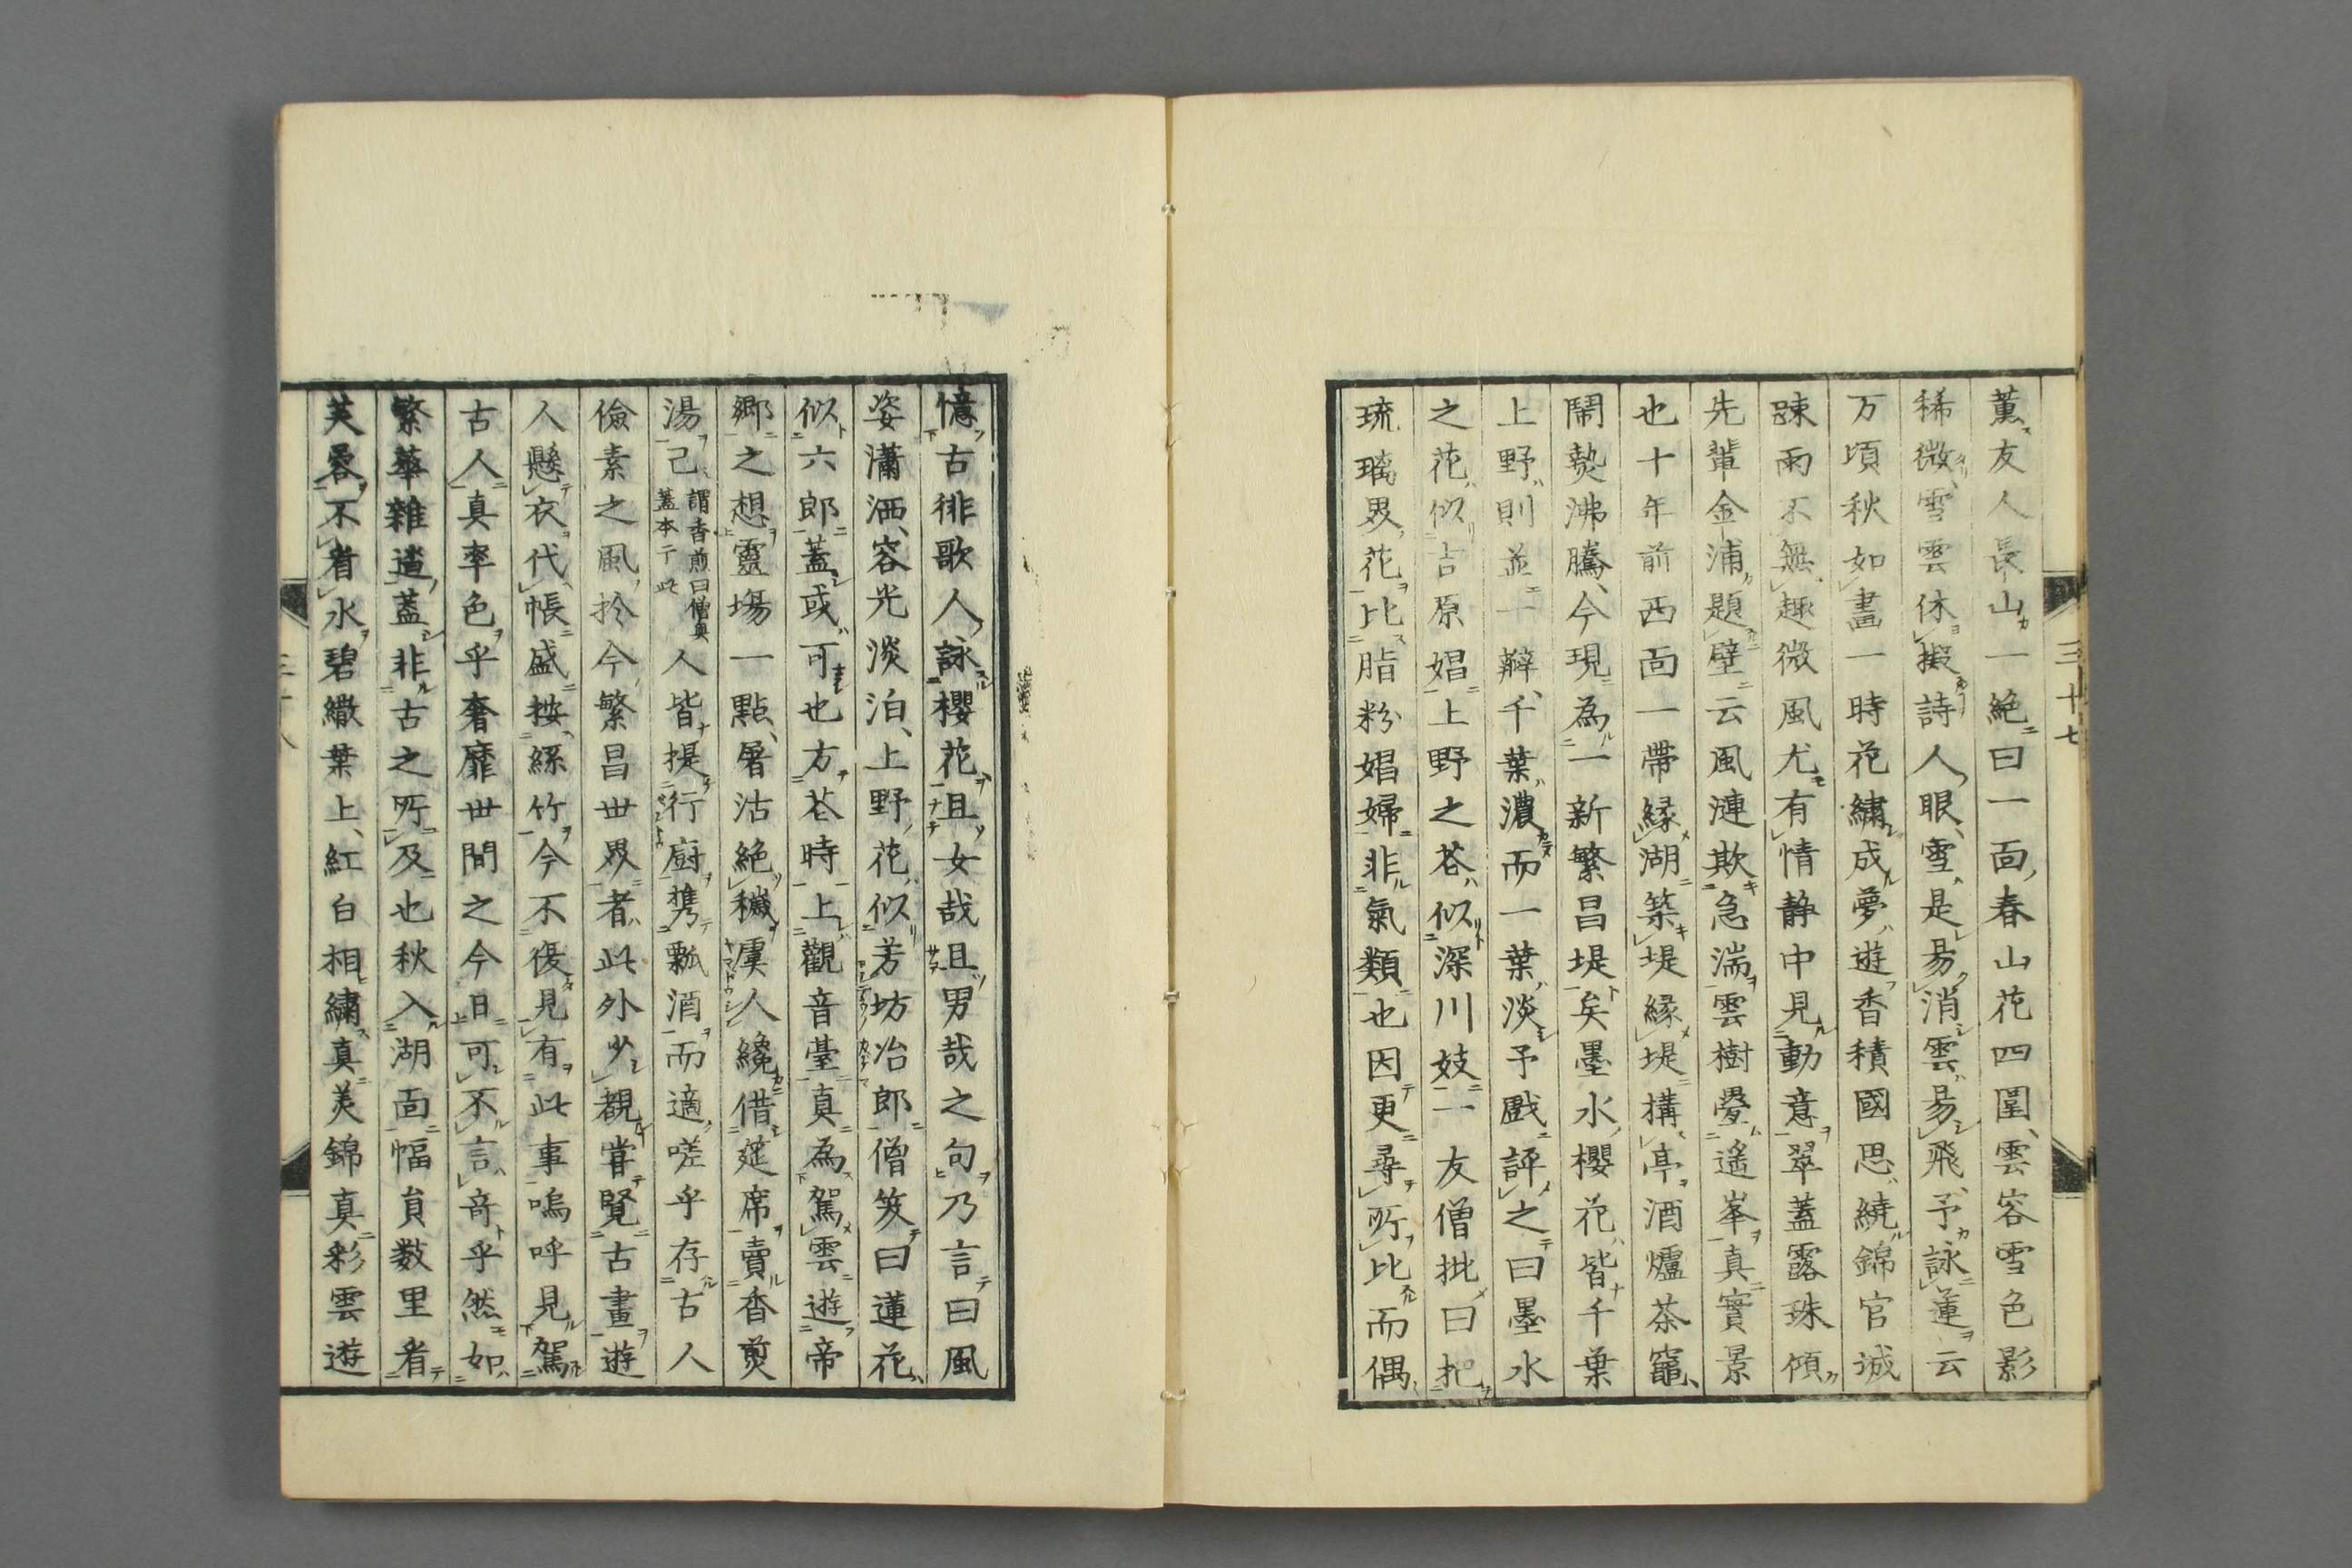 薫友人長山一絶曰一面春山花四圍雲容雪色影
稀微雪雲休擬詩人眼雪是易消雲易飛予詠蓮云
万頃秋如畫一時花繍成夢遊香積國思繞錦官城
踈雨不無趣微風尤有情静中見動意翠蓋露珠傾
先輩金浦題壁云風漣欺急湍雲樹疊遙峯真實景
也十年前西面一帶縁湖築堤縁堤搆亭酒爐茶竈
鬧熱沸騰今現為一新繁昌堤矣墨水櫻花皆千葉
上野則並一辧千葉濃而一葉淡予戲評之曰墨水
之花似吉原娼上野之花似深川妓一友僧批曰把
琉璃界花比脂粉娼婦非氣類也因更尋所比而偶
三十七
憶古徘歌人詠櫻花且女哉且男哉之句乃言曰風
姿瀟洒容光淡泊上野花似芳坊冶郎僧笑曰蓮花
似六郎蓋或可也方花時上觀音臺真為駕雲遊帝
郷之想靈塲一點屠沽絶穢虞人纔借莚席賣香煎
湯己謂香煎曰僧奥蓋本于此人皆提行厨携瓢酒而適嗟乎存古人
儉素之風於今繁昌世界者此外少覩甞覽古畫遊
人懸衣代帳盛按絲竹今不復見有此事嗚呼見駕
古人真率色乎奢靡世間之今日可不言竒乎然如
繁華雜遝蓋非古之所及也秋入湖面幅員数里看
芙蓉不着水碧繖葉上紅白相繍真美錦真彩雲遊
三十八